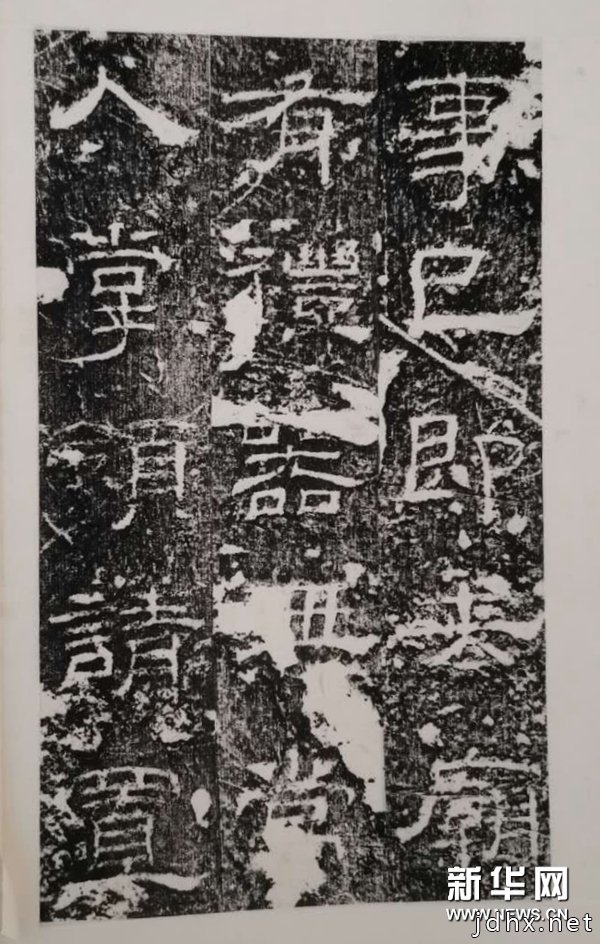 事已即去廟
有禮器無常
人掌領請置
新华网
WWW.NEWS.CN
jdhx.net